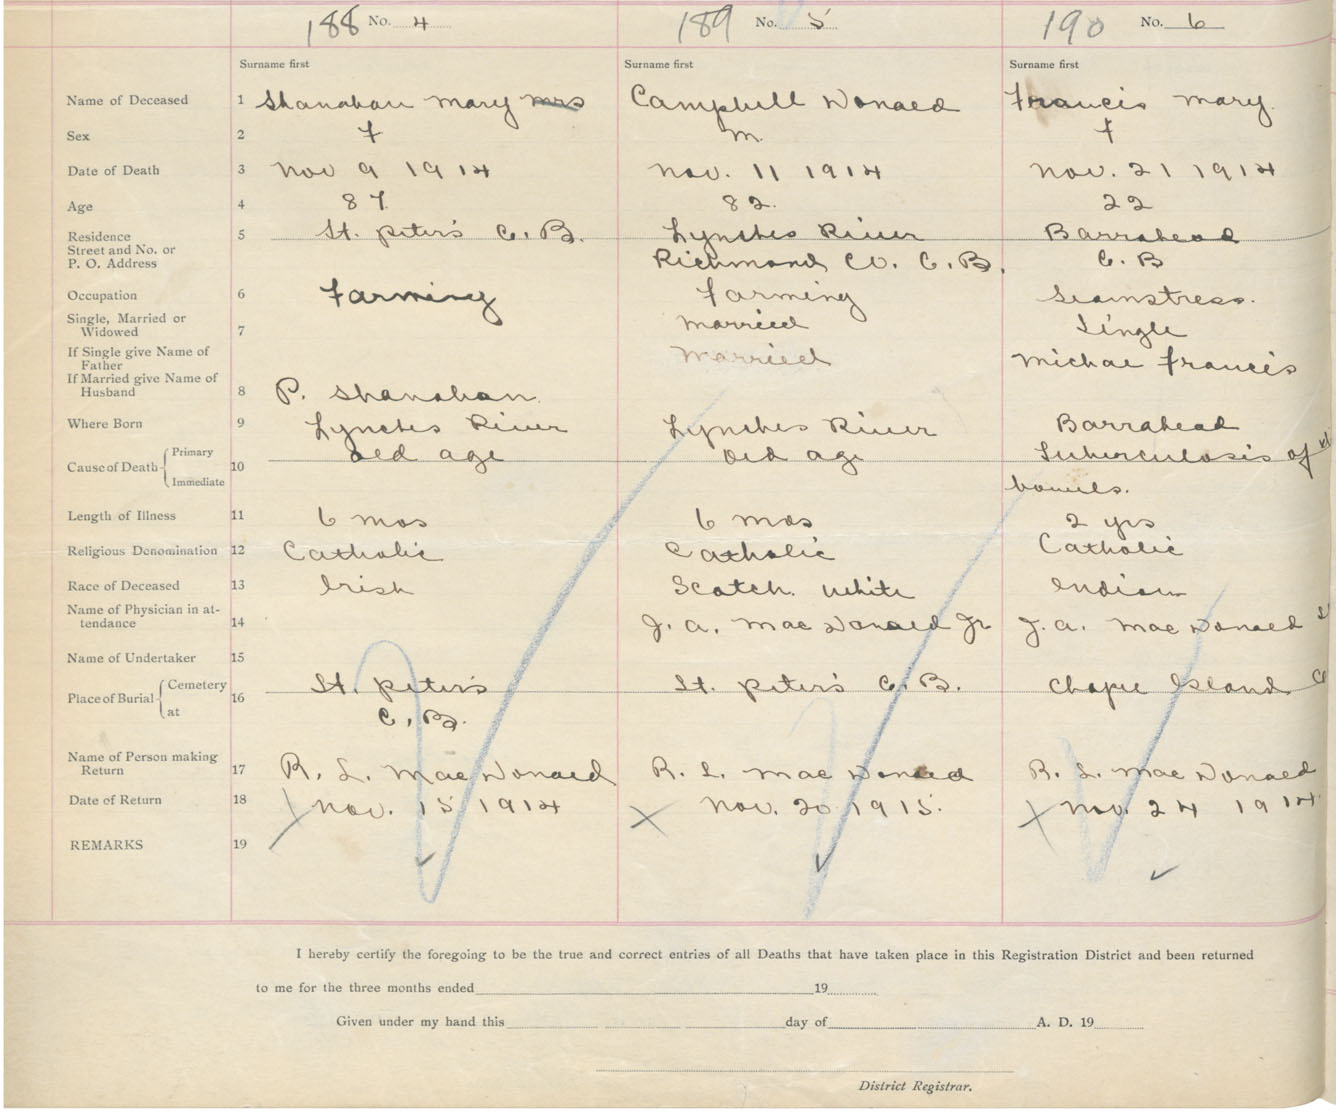 188 No. 4
189 No. 5
190 No. 6
Surname first
Surname first
Surname first
Name of Deceased 1 Shanahan Mary Mrs Campbell Donald Francis Mary.
Sex 2 F M. F
Date of Death 3 Nov 9 1914 Nov. 11 1914 Nov. 21 1914
Age 4 87 82. 22
Residence 5 St. Peter's C. B. Lynches River Barrahead
Street and No. or
P. O. Address Richmond Co. C. B. C. B
Occupation 6 Farming Farming Seamstress.
Single, Married or
Widowed 7 Married Single
If Single give Name of
Father Married Michae Francis
If Married give Name of
Husband 8 P. Shanahan.
Where Born 9 Lynches River Lynches River Barrahead
Cause of Death Primary 10 Old age Old age Tuberculosis of
Immediate bowels.
Length of Illness 11 6 mos 6 mos 2 yrs
Religious Denomination 12 Catholic Catholic Catholic
Race of Deceased 13 Irish Scotch. White Indian
Name of Physician in at-
tendance 14 J. A. MacDonald Jr J. A. MacDonald
Name of Undertaker 15
Place of Burial Cemetery 16 St. Peter's St. Peter's C. B. Chapel Island
at C. B.
Name of Person making
Return 17 R. L. MacDonald R. L. MacDonald R. L. MacDonald
Date of Return 18 Nov. 15 1914 Nov. 20 1915. Nov. 24 1914
REMARKS 19
I hereby certify the foregoing to be the true and correct entries of all Deaths that have taken place in this Registration District and been returned
to me for the three months ended 19
Given under my hand this day of A. D. 19
District Registrar.